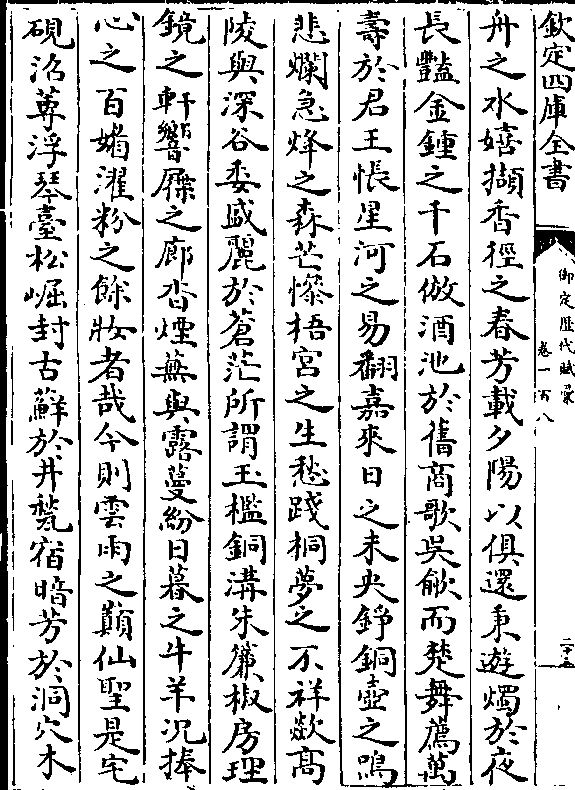 欽定四庫全書
御定歷代賦彙
卷一百八
二十五
舟之水嬉擷香徑之春芳載夕陽以俱還秉遊燭於夜
長豔金鍾之千石倣酒池於舊商歌吳歈而楚舞薦萬
壽於君王悵星河之易翻嘉來日之未央錚銅壺之鳴
悲爛急烽之森芒慘梧宮之生愁踐桐夢之不祥歘髙
陵與深谷委盛麗於蒼茫所謂玉檻銅溝朱簾椒房理
鏡之軒響屧之廊沓煙蕪與露蔓紛日暮之牛羊況捧
心之百媚濯粉之餘妝者哉今則雲雨之顛仙聖是宅
硯沼蓴浮琴臺松崛封古蘚於井甃宿暗芳於洞穴木